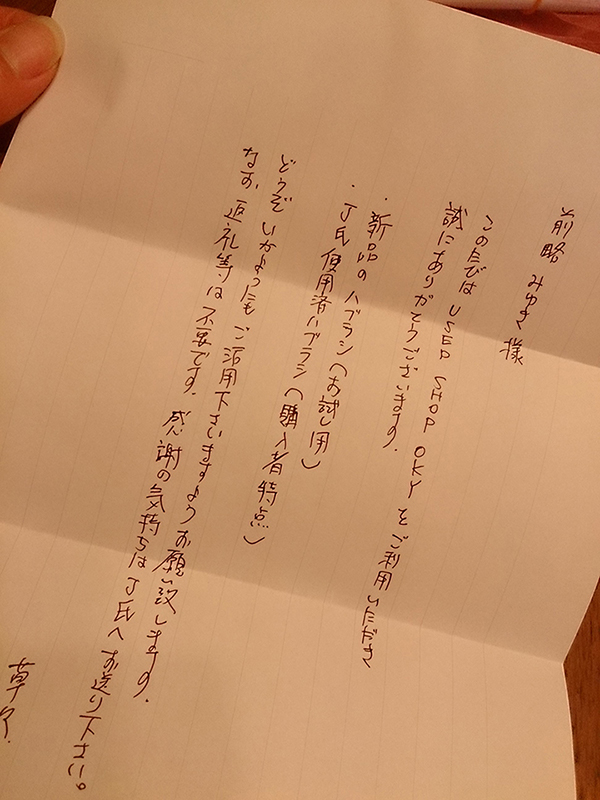 前略 みゆき様
このたびは USED SHOP OKY をご利用いただき
誠にありがとうございます.
・新品のハブラシ(お試し用)
・J氏使用済ハブラシ(購入者特点)
どうぞ いかようにも ご活用下さいますようお願い致します.
なお,返礼等は不要です. 感謝の気持ちは J氏へ お送り下さい。
草々.